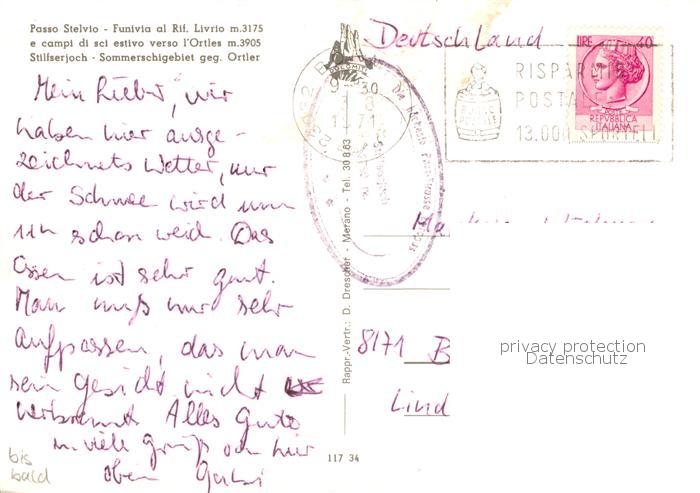 Passo Stelvio - Funivia al Rif. Livrio m.3175
e campi di sci estivo verso l'Ortles m.3905
Stilfserjoch - Sommerschigebiet geg. Ortler
Mein Lieber, wir
haben hier ausge-
zeichnets Wetter, nur
der Schnee wird nun
schon weich. Das
Essen ist sehr gut.
Man muß nur sehr
aufpassen, das man
sein Gesicht nicht
verbrennt Alles Gute
u. viele Grüße von hier
oben Gabi
bis
bald
Rappr.-Vertr.: D. Drescher - Merano - Tel. 30 8 63
117 34
Deutschland
LIRE 40
POSTE
REPVBBLICA
ITALIANA
RISPARMIO
POSTALE
13.000 SPORTELLI
8171 B
Lind
privacy protection
Datenschutz